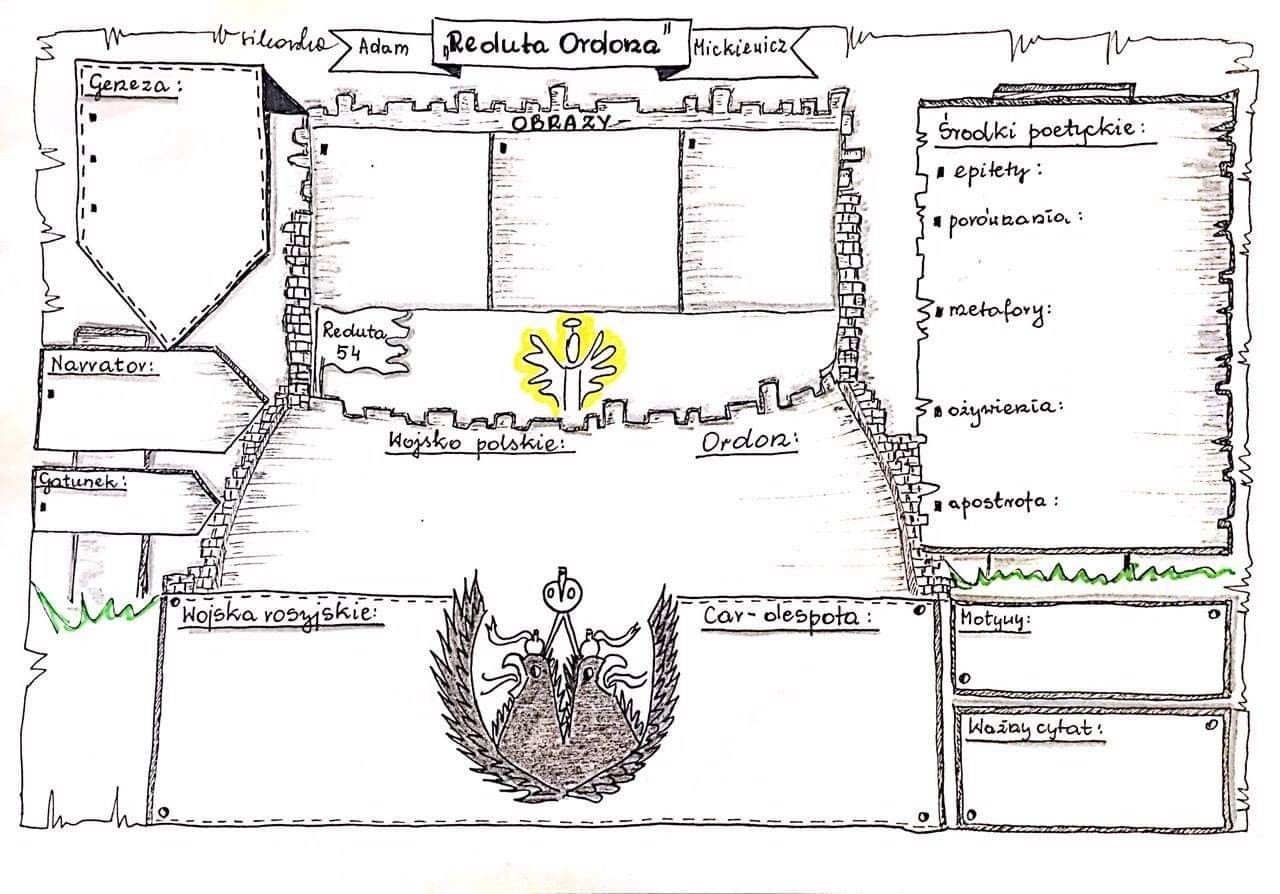 w sikorska
Adam
„Reduta Ordona"
Mickiewicz
Geneza:
OBRAZY
Reduta
54
Narrator:
Gatunek:
Wojsko polskie:
Ordon:
Wojska rosyjskie:
Car-despota:
Środki poetyckie:
epitety:
porównania:
metafory:
ożywienia:
apostrofa:
Motywy:
Ważny cytat: